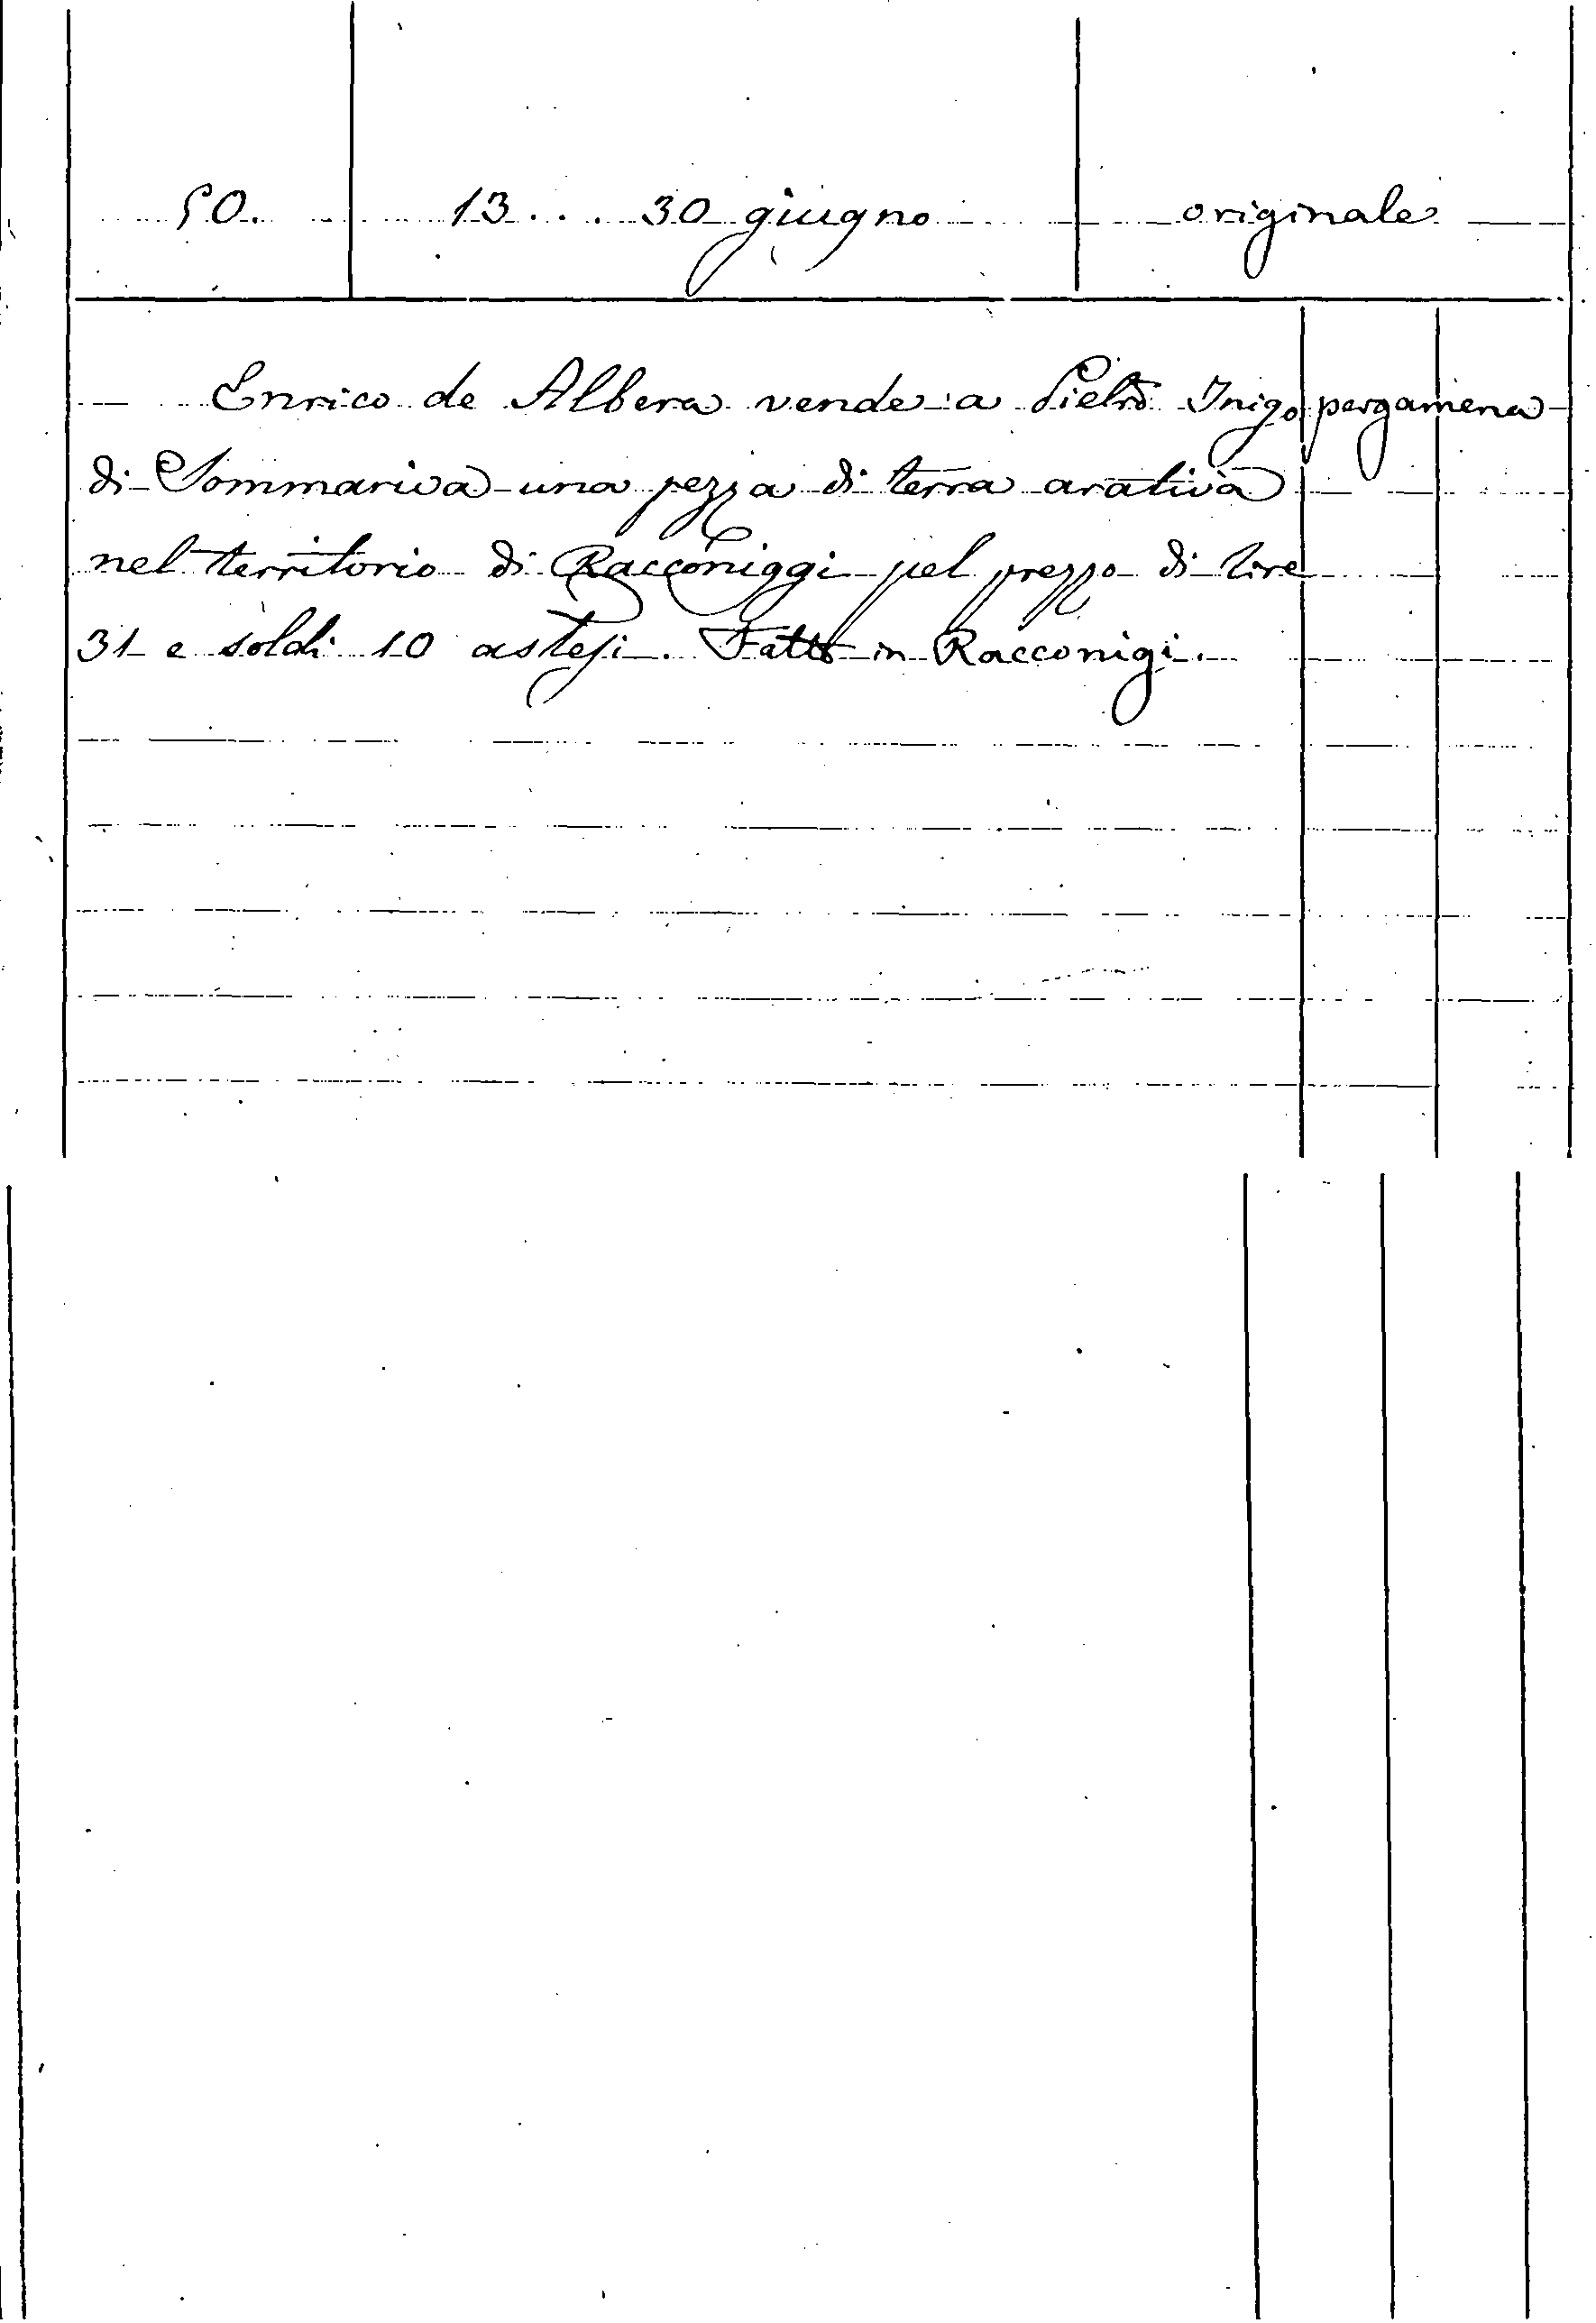 50. 13... 30 giugno originale
Enrico de Albera vende a Pietro Inigo pergamena
di Sommariva una pezza di terra arativa
nel territorio di Racconiggi pel prezzo di lire
31 e soldi 10 astesi. Fatto in Racconigi.